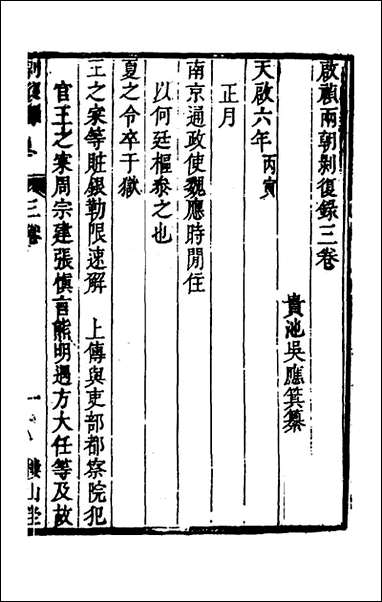 啟禎兩朝剝復錄三卷
貴池吳應箕纂
天啟六年丙寅
正月
南京通政使魏應時閒住
以何廷樞叅之也
夏之令卒于獄
王之寀等贓銀勒限速解　上傳與吏部都察院犯
官王之寀周宗建張慎言熊明遇方大任等及故
剝復錄
三卷
一
樓山堂